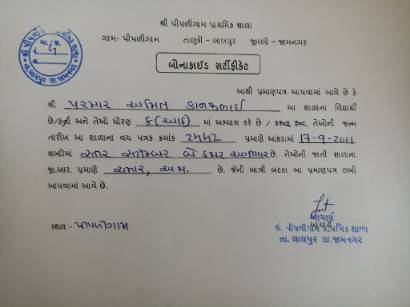 શ્રી પીપળીગામ પ્રાથમિક શાળા
ગામ- પીપળીગામ તાલુકો - લાલપુર જીલ્લો - જામનગર
બોનાફાઈડ સર્ટીફીકેટ
આથી પ્રમાણપત્ર આપવામાં આવે છે કે
શ્રી પરમાર અમિત કાનજીભાઈ આ શાળાના વિદ્યાર્થી
છે/હતાં અને તેઓ ધોરણ ૮(આઠ) માં અભ્યાસ કરે છે / કરતા હતા. તેઓની જન્મ
તારીખ આ શાળાના વય પત્રક ક્રમાંક ૨૫૫૮ પ્રમાણે આંકડામાં 17-9-2011
શબ્દોમાં સત્તર સપ્ટેમ્બર બે હજાર અગીયાર છે. તેઓની જાતી શાળાના
જી.આર. પ્રમાણે છે. જેની ખાત્રી બદલ આ પ્રમાણપત્ર લખી
આપવામાં આવે છે.
આચાર્ય
સ્થળ : પીપળીગામ
શ્રી પીપળીગામ પ્રાથમિક શાળા
તા. લાલપુર જી.જામનગર